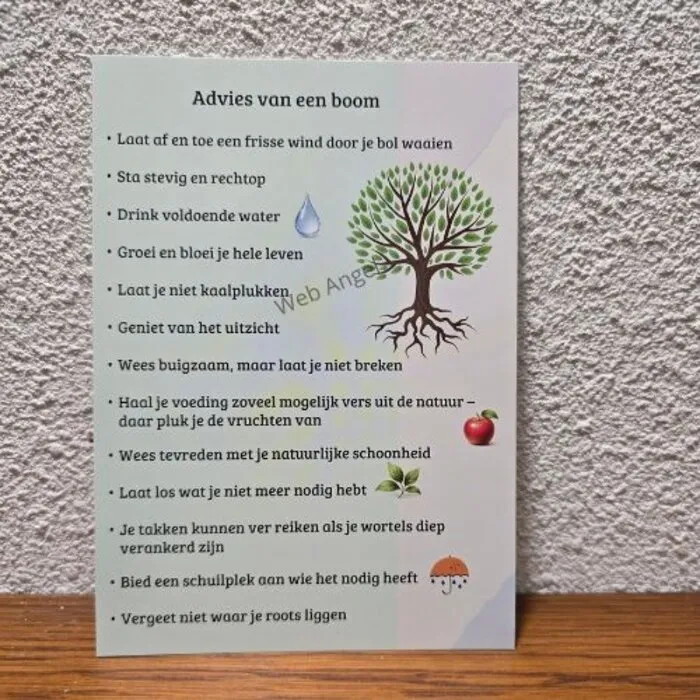 Advies van een boom
• Laat af en toe een frisse wind door je bol waaien
• Sta stevig en rechtop
• Drink voldoende water
• Groei en bloei je hele leven
• Laat je niet kaalplukken
Web Angel
• Geniet van het uitzicht
• Wees buigzaam, maar laat je niet breken
• Haal je voeding zoveel mogelijk vers uit de natuur –
daar pluk je de vruchten van
• Wees tevreden met je natuurlijke schoonheid
• Laat los wat je niet meer nodig hebt
• Je takken kunnen ver reiken als je wortels diep
verankerd zijn
• Bied een schuilplek aan wie het nodig heeft
• Vergeet niet waar je roots liggen